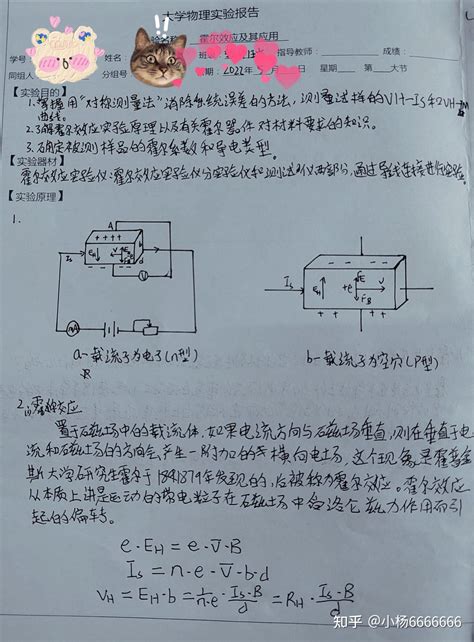 大学物理实验报告
霍尔效应及其应用
学号 姓名 指导教师: 成绩:
同组人 分组号 期:2022 星期: 第 大节
【实验目的】
1.掌握用"对称测量法"消除系统误差的方法,测量试样的VH-Is和VH-
曲线。
2.了解霍尔效应实验原理以及有关霍尔器件对材料要求的知识。
3.确定被测样品的霍尔系数和导电类型。
【实验器材】
霍尔效应实验仪:霍尔效应实验仪分实验仪和测试仪两部分,通过导线连接进行实验
【实验原理】
1.
A
+ + + +
Is EH v b
d
- - - -
V
mA
a-载流子为电子(n型)
B
- - - -
Is EH +e FE v FB
+ + + +
b-载流子为空穴(P型)
2.霍尔效应
置于磁场中的载流体,如果电流方向与磁场垂直,则在垂直于电
流和磁场的方向会产生一附加的横向电场,这个现象是霍普金
斯大学研究生霍尔于1879年发现的,后被称为霍尔效应。霍尔效应
从本质上讲是运动的带电粒子在磁场中合洛仑兹力作用而引
起的偏转。
e·EH=e·v̄·B
Is=n·e·v̄·b·d
VH=EH·b=1/n·e·Is·B/d=RH·Is·B/d
知乎 @小杨6666666